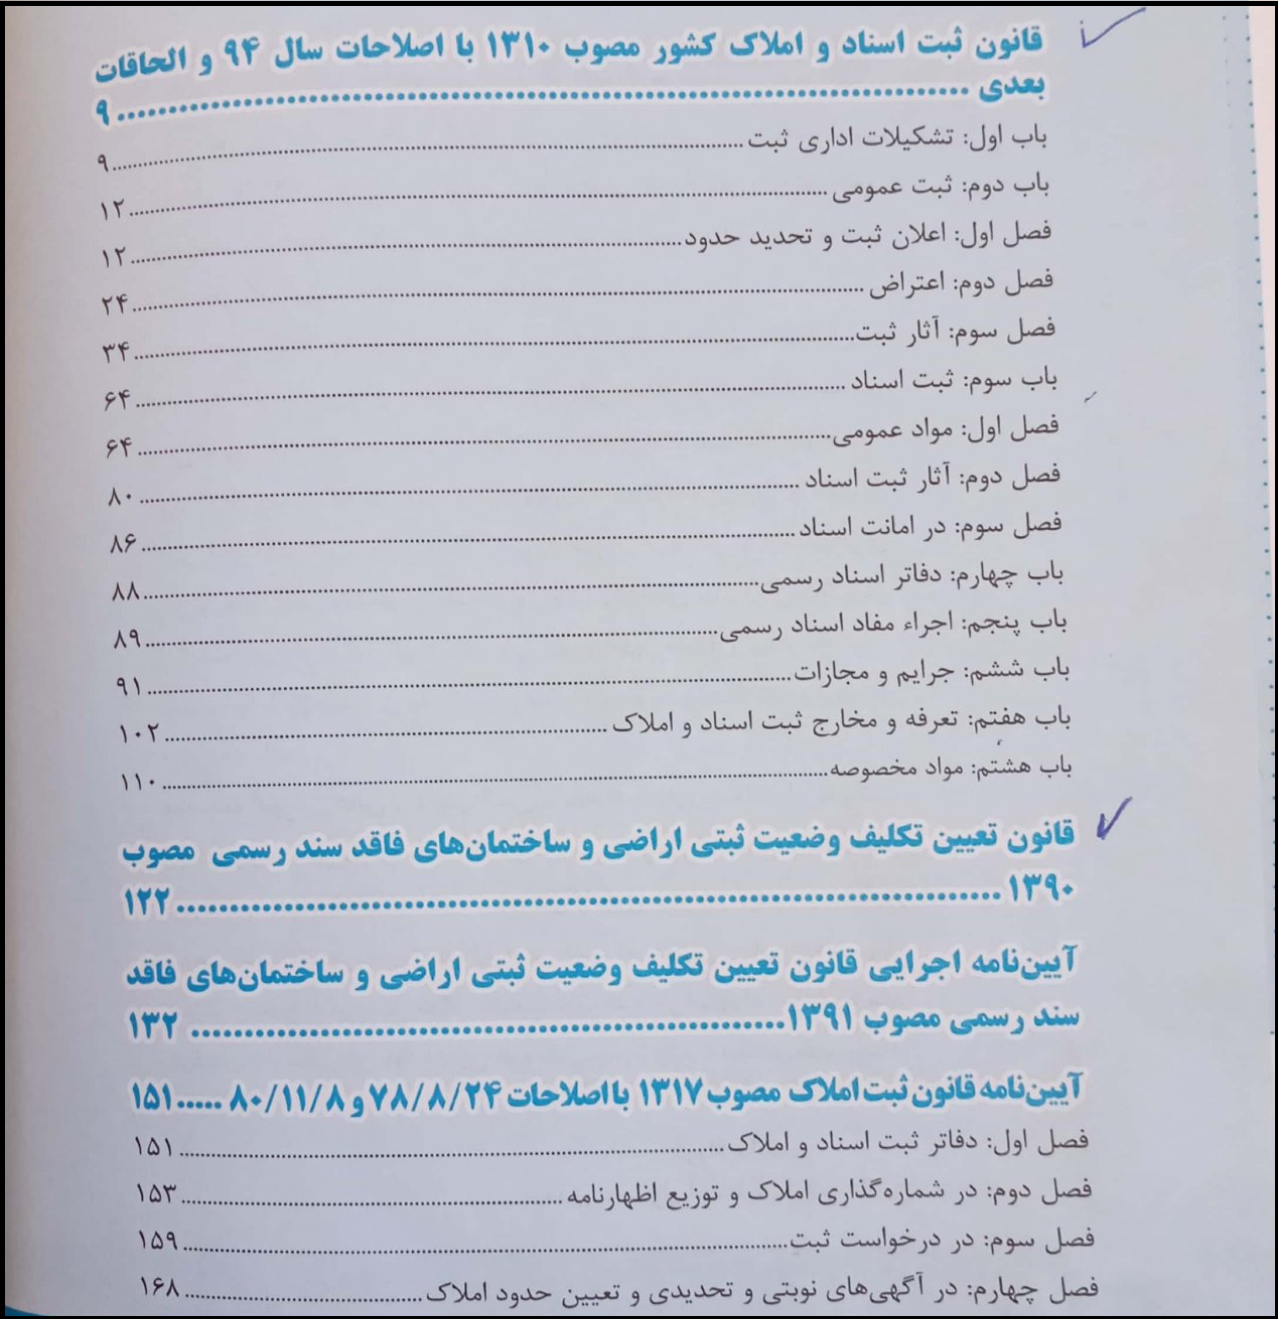 قانون ثبت اسناد و املاک کشور مصوب ۱۳۱۰ با اصلاحات سال ۹۴ و الحاقات
بعدی ........................................ ۹
باب اول: تشکیلات اداری ثبت ........................................ ۹
باب دوم: ثبت عمومی ........................................ ۱۲
فصل اول: اعلان ثبت و تحدید حدود ........................................ ۱۲
فصل دوم: اعتراض ........................................ ۲۴
فصل سوم: آثار ثبت ........................................ ۳۴
باب سوم: ثبت اسناد ........................................ ۶۴
فصل اول: مواد عمومی ........................................ ۶۴
فصل دوم: آثار ثبت اسناد ........................................ ۸۰
فصل سوم: در امانت اسناد ........................................ ۸۶
باب چهارم: دفاتر اسناد رسمی ........................................ ۸۸
باب پنجم: اجراء مفاد اسناد رسمی ........................................ ۸۹
باب ششم: جرایم و مجازات ........................................ ۹۱
باب هفتم: تعرفه و مخارج ثبت اسناد و املاک ........................................ ۱۰۲
باب هشتم: مواد مخصوصه ........................................ ۱۱۰
قانون تعیین تکلیف وضعیت ثبتی اراضی و ساختمان‌های فاقد سند رسمی مصوب
۱۳۹۰ ........................................ ۱۲۲
آیین‌نامه اجرایی قانون تعیین تکلیف وضعیت ثبتی اراضی و ساختمان‌های فاقد
سند رسمی مصوب ۱۳۹۱ ........................................ ۱۳۲
آیین‌نامه قانون ثبت املاک مصوب ۱۳۱۷ با اصلاحات ۷۸/۸/۲۴ و ۸۰/۱۱/۸ ..... ۱۵۱
فصل اول: دفاتر ثبت اسناد و املاک ........................................ ۱۵۱
فصل دوم: در شماره‌گذاری املاک و توزیع اظهارنامه ........................................ ۱۵۳
فصل سوم: در درخواست ثبت ........................................ ۱۵۹
فصل چهارم: در آگهی‌های نوبتی و تحدیدی و تعیین حدود املاک ........................................ ۱۶۸